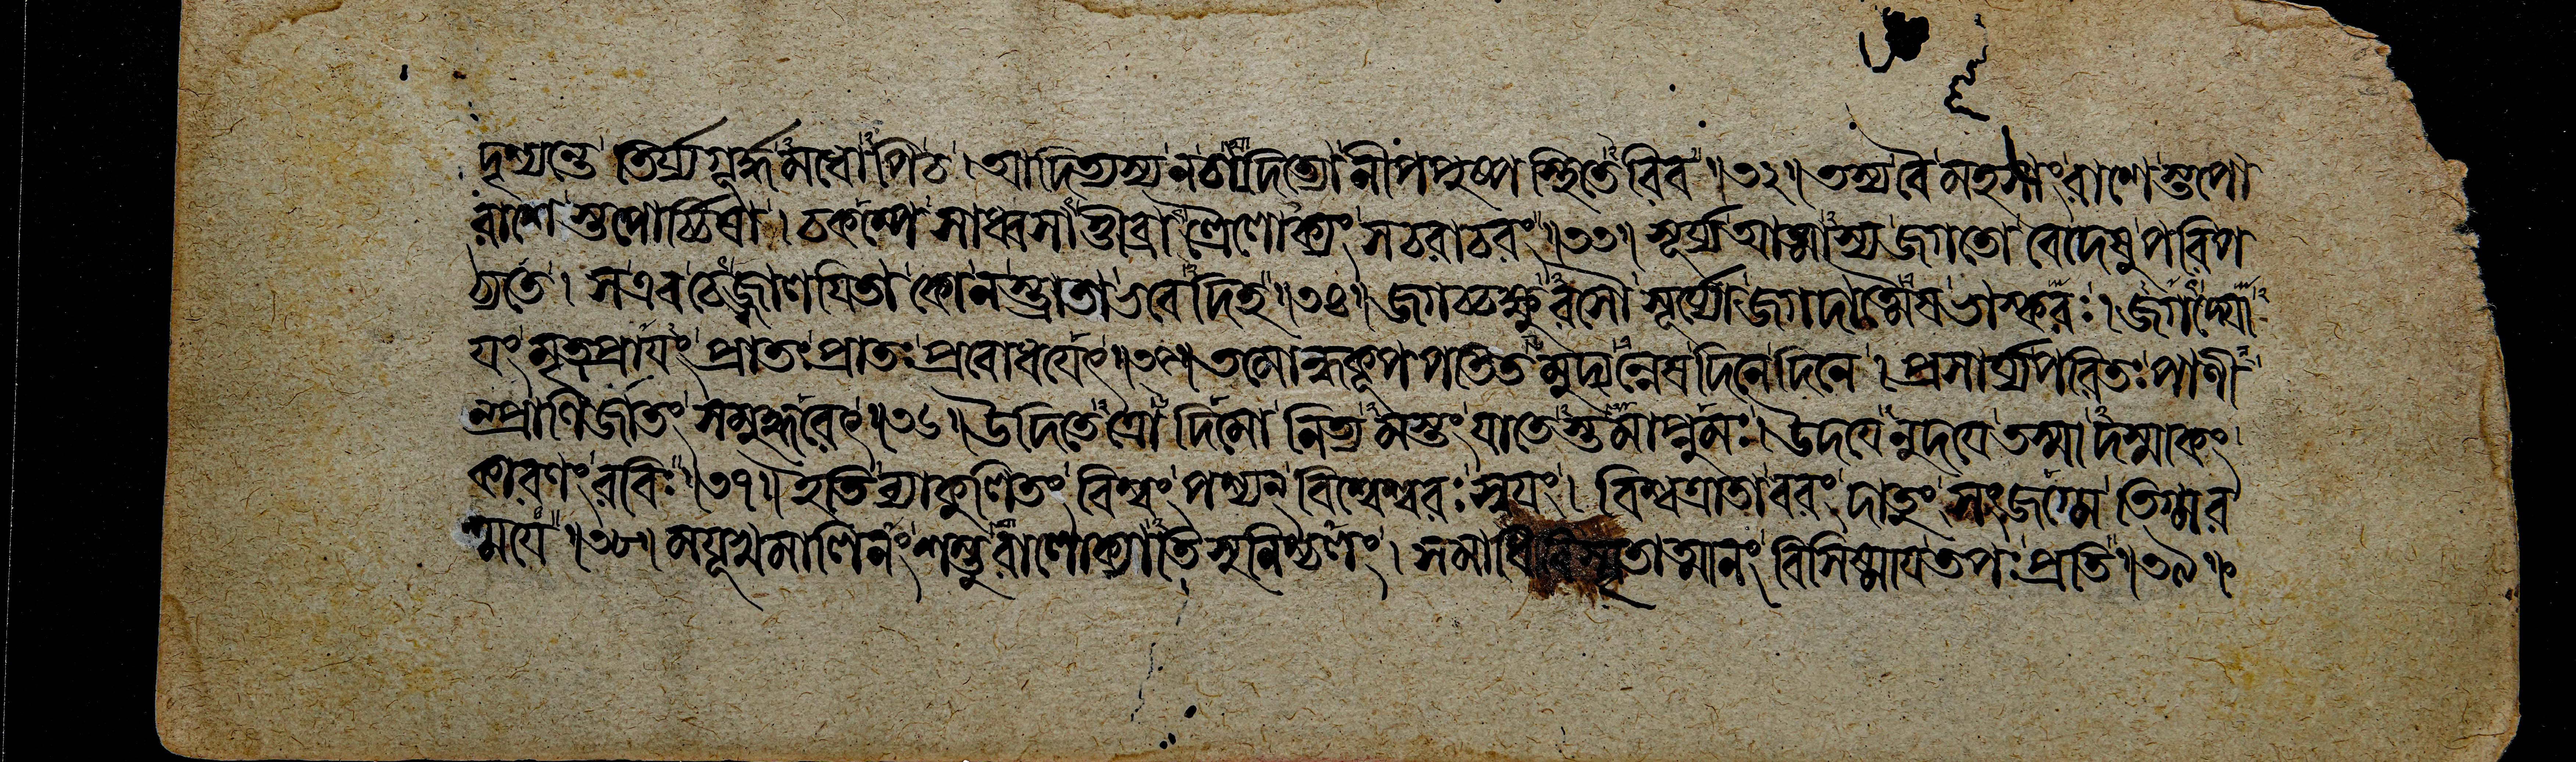 দৃশ্যন্তে তির্য্যগূর্দ্ধ্বমধোপি চ । আদিত্যস্য ন চাদিত্যো নীপপুষ্পস্থিতেরিব ॥ ৩২ ॥ তস্য বৈ মহসাং রাশেস্তপো
রাশেস্তপোর্চ্চিষাং । চকম্পে সাধ্বসাত্তীব্রাত্ত্রৈলোক্যং সচরাচরং ॥ ৩৩ ॥ সূর্য্য আত্মাস্য জগতো বেদেষু পরিপ
ঠ্যতে । স এব চেজ্জ্বালয়িতা কো নস্ত্রাতা ভবেদিহ ॥ ৩৪ ॥ জগচ্চক্ষুরসৌ সূর্য্যো জগদাত্মৈষ ভাস্করঃ । জগদ্যো
যং মৃতপ্রাযং প্রাতঃ প্রাতঃ প্রবোধযেৎ ॥ ৩৫ ॥ তমোন্ধকূপপতিতমুদ্যন্নেষ দিনে দিনে । প্রসার্য্য পরিতঃ পাণী
ন্প্রাণিজাতং সমুদ্ধরেৎ ॥ ৩৬ ॥ উদিতেত্রোদিমো নিত্যমস্তং যাতেস্তমাপ্নুমঃ । উদযেনুদযে তস্মাদস্মাকং
কারণং রবিঃ ॥ ৩৭ ॥ ইতি ব্যাকুলিতং বিশ্বং পশ্যন্ বিশ্বেশ্বরঃ স্বযং । বিশ্বত্রাতা বরং দাতুং সংজগ্মে তিগ্মর
শ্মযে ॥ ৩৮ ॥ মযূখমালিনং শম্ভুরালোক্যাতিসুনিশ্চলং । সমাধিবিস্মৃতাত্মানং বিসিষ্মায তপঃ প্রতি ॥ ৩৯ ॥